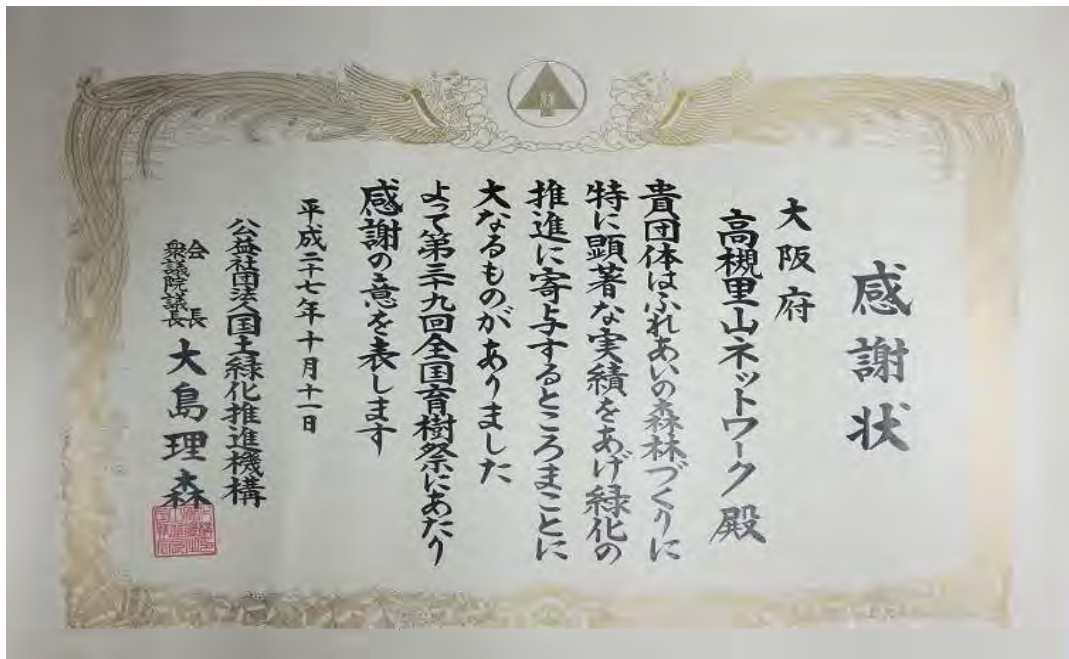 感謝状
大阪府
高槻里山ネットワーク殿
貴団体はふれあいの森林づくりに
特に顕著な実績をあげ緑化の
推進に寄与するところまことに
大なるものがありました
よって第三十九回全国育樹祭にあたり
感謝の意を表します
平成二十七年十月十一日
公益社団法人国土緑化推進機構
会長
衆議院議長
大島理森